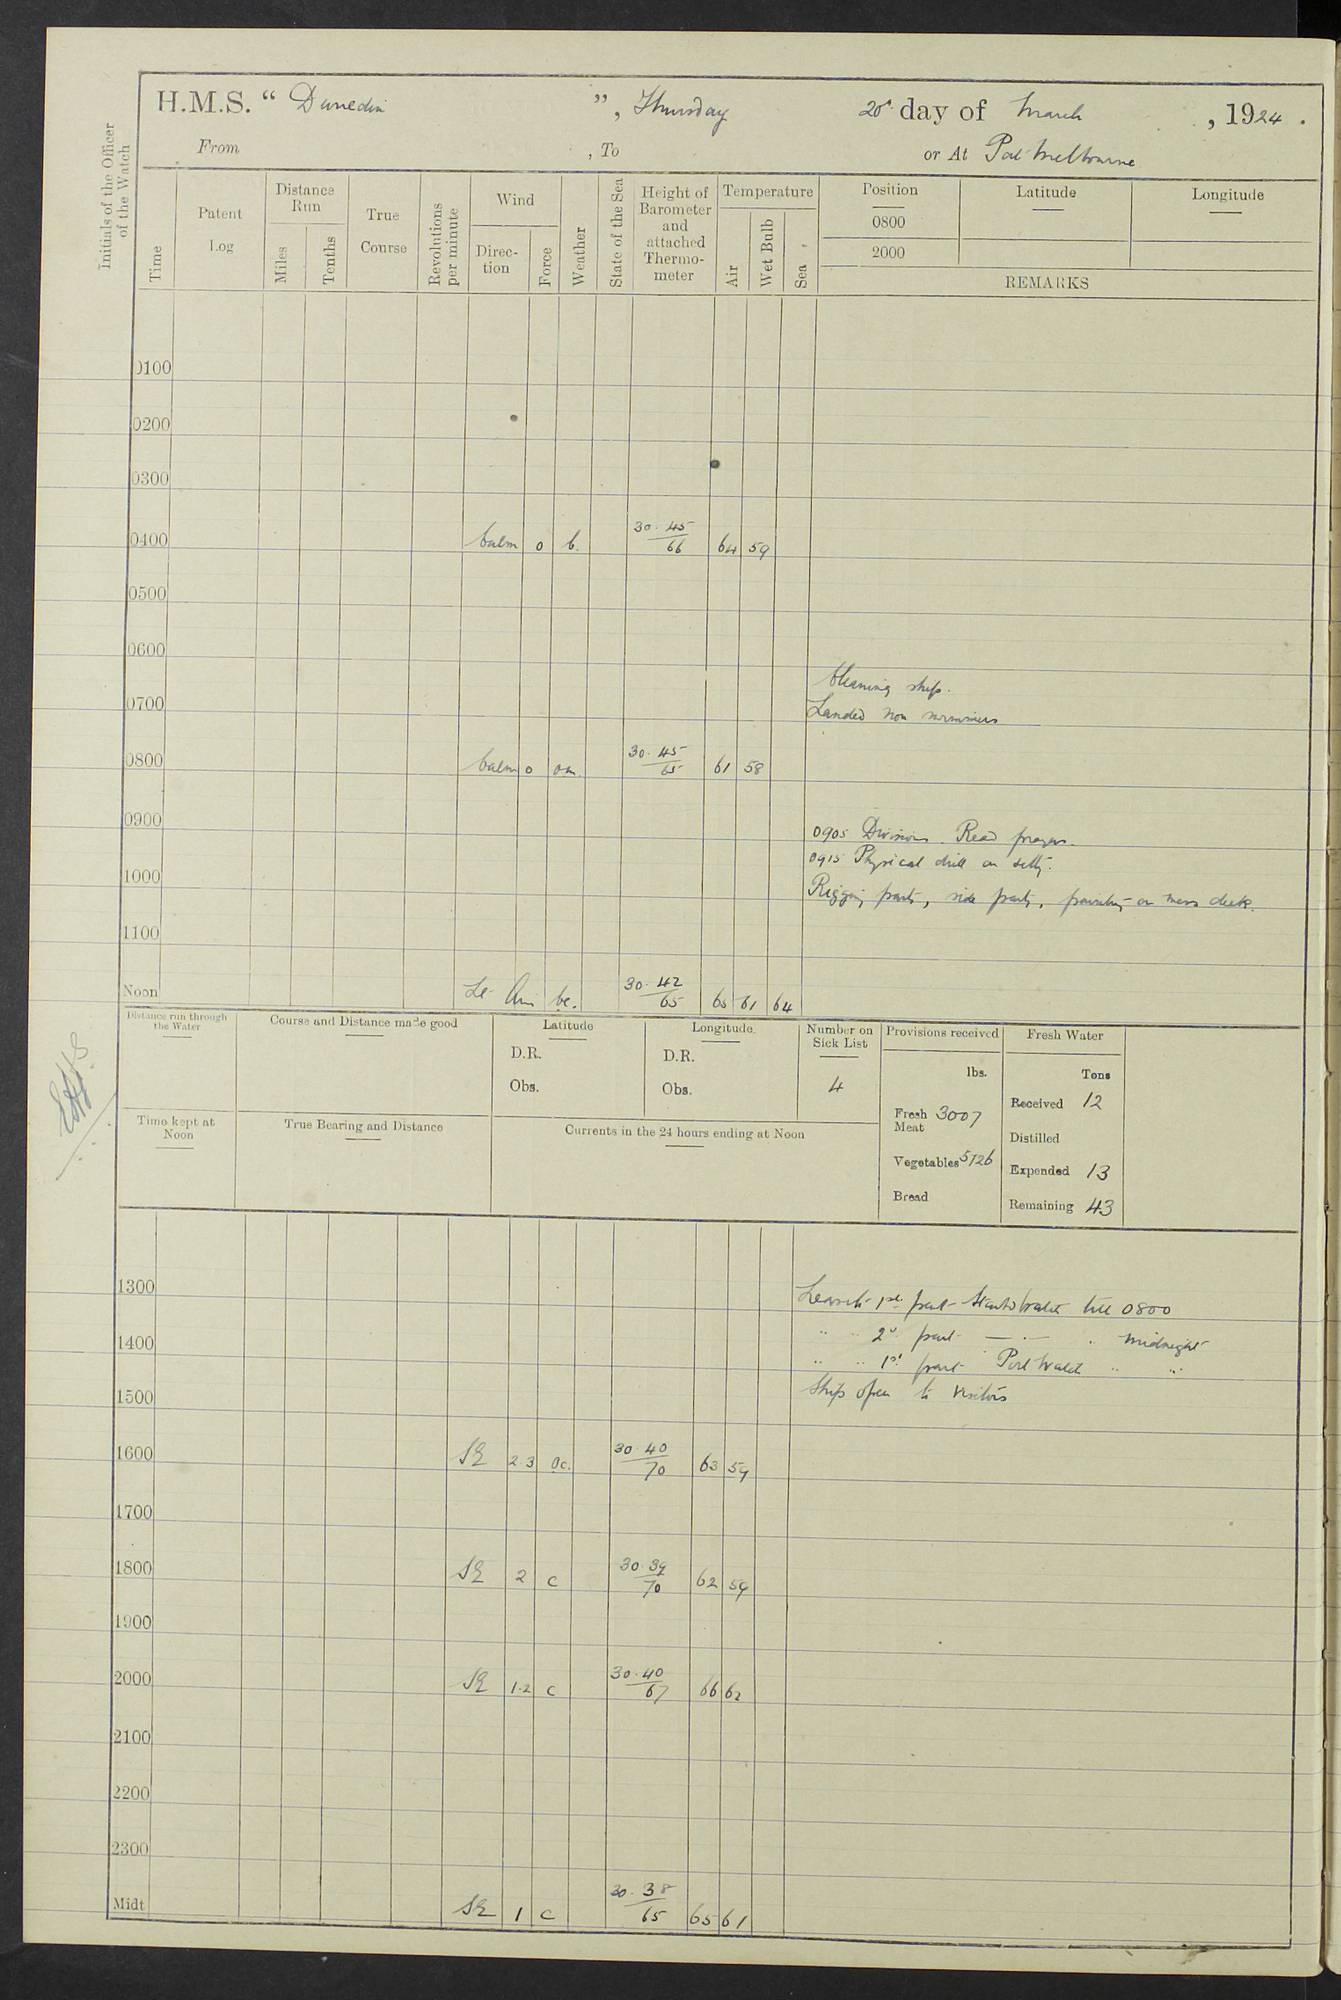 H.M.S. " Dunedin ", Thursday 20th day of March, 1924.
From , To or At Port Melbourne
Initials of the Officer of the Watch
Time
Patent Log
Distance Run
Miles
Tenths
True Course
Revolutions per minute
Wind
Direction
Force
Weather
State of the Sea
Height of Barometer and attached Thermometer
Temperature
Air
Wet Bulb
Sea
Position
0800
2000
Latitude
Longitude
REMARKS
0100
0200
0300
0400 Calm 0 b. 30.45 66 64 59
0500
0600
Cleaning ship.
0700 Landed non swimmers
0800 Calm 0 om. 30.45 65 61 58
0900 0905 Divisions. Read prayers.
0915 Physical drill on jetty.
1000 Rigging party, side party, painting on mess deck.
1100
Noon Lt Airs bc. 30.42 65 65 61 64
Distance run through the Water
Course and Distance made good
Latitude
D.R.
Obs.
Longitude
D.R.
Obs.
Number on Sick List
4
Provisions received
lbs.
Fresh Meat 3007
Vegetables 5726
Bread
Fresh Water
Tons
Received 12
Distilled
Expended 13
Remaining 43
Time kept at Noon
True Bearing and Distance
Currents in the 24 hours ending at Noon
1300 Leave to 1st part Starbd Watch till 0800
" " 2nd part — " — " midnight
1400 " " 1st part Port Watch " "
1500 Ship open to visitors
1600 SE 2.3 oc. 30.40 70 63 59
1700
1800 SE 2 c 30.39 70 62 59
1900
2000 SE 1.2 c 30.40 67 66 62
2100
2200
2300
Midt SE 1 c 30.38 65 65 61